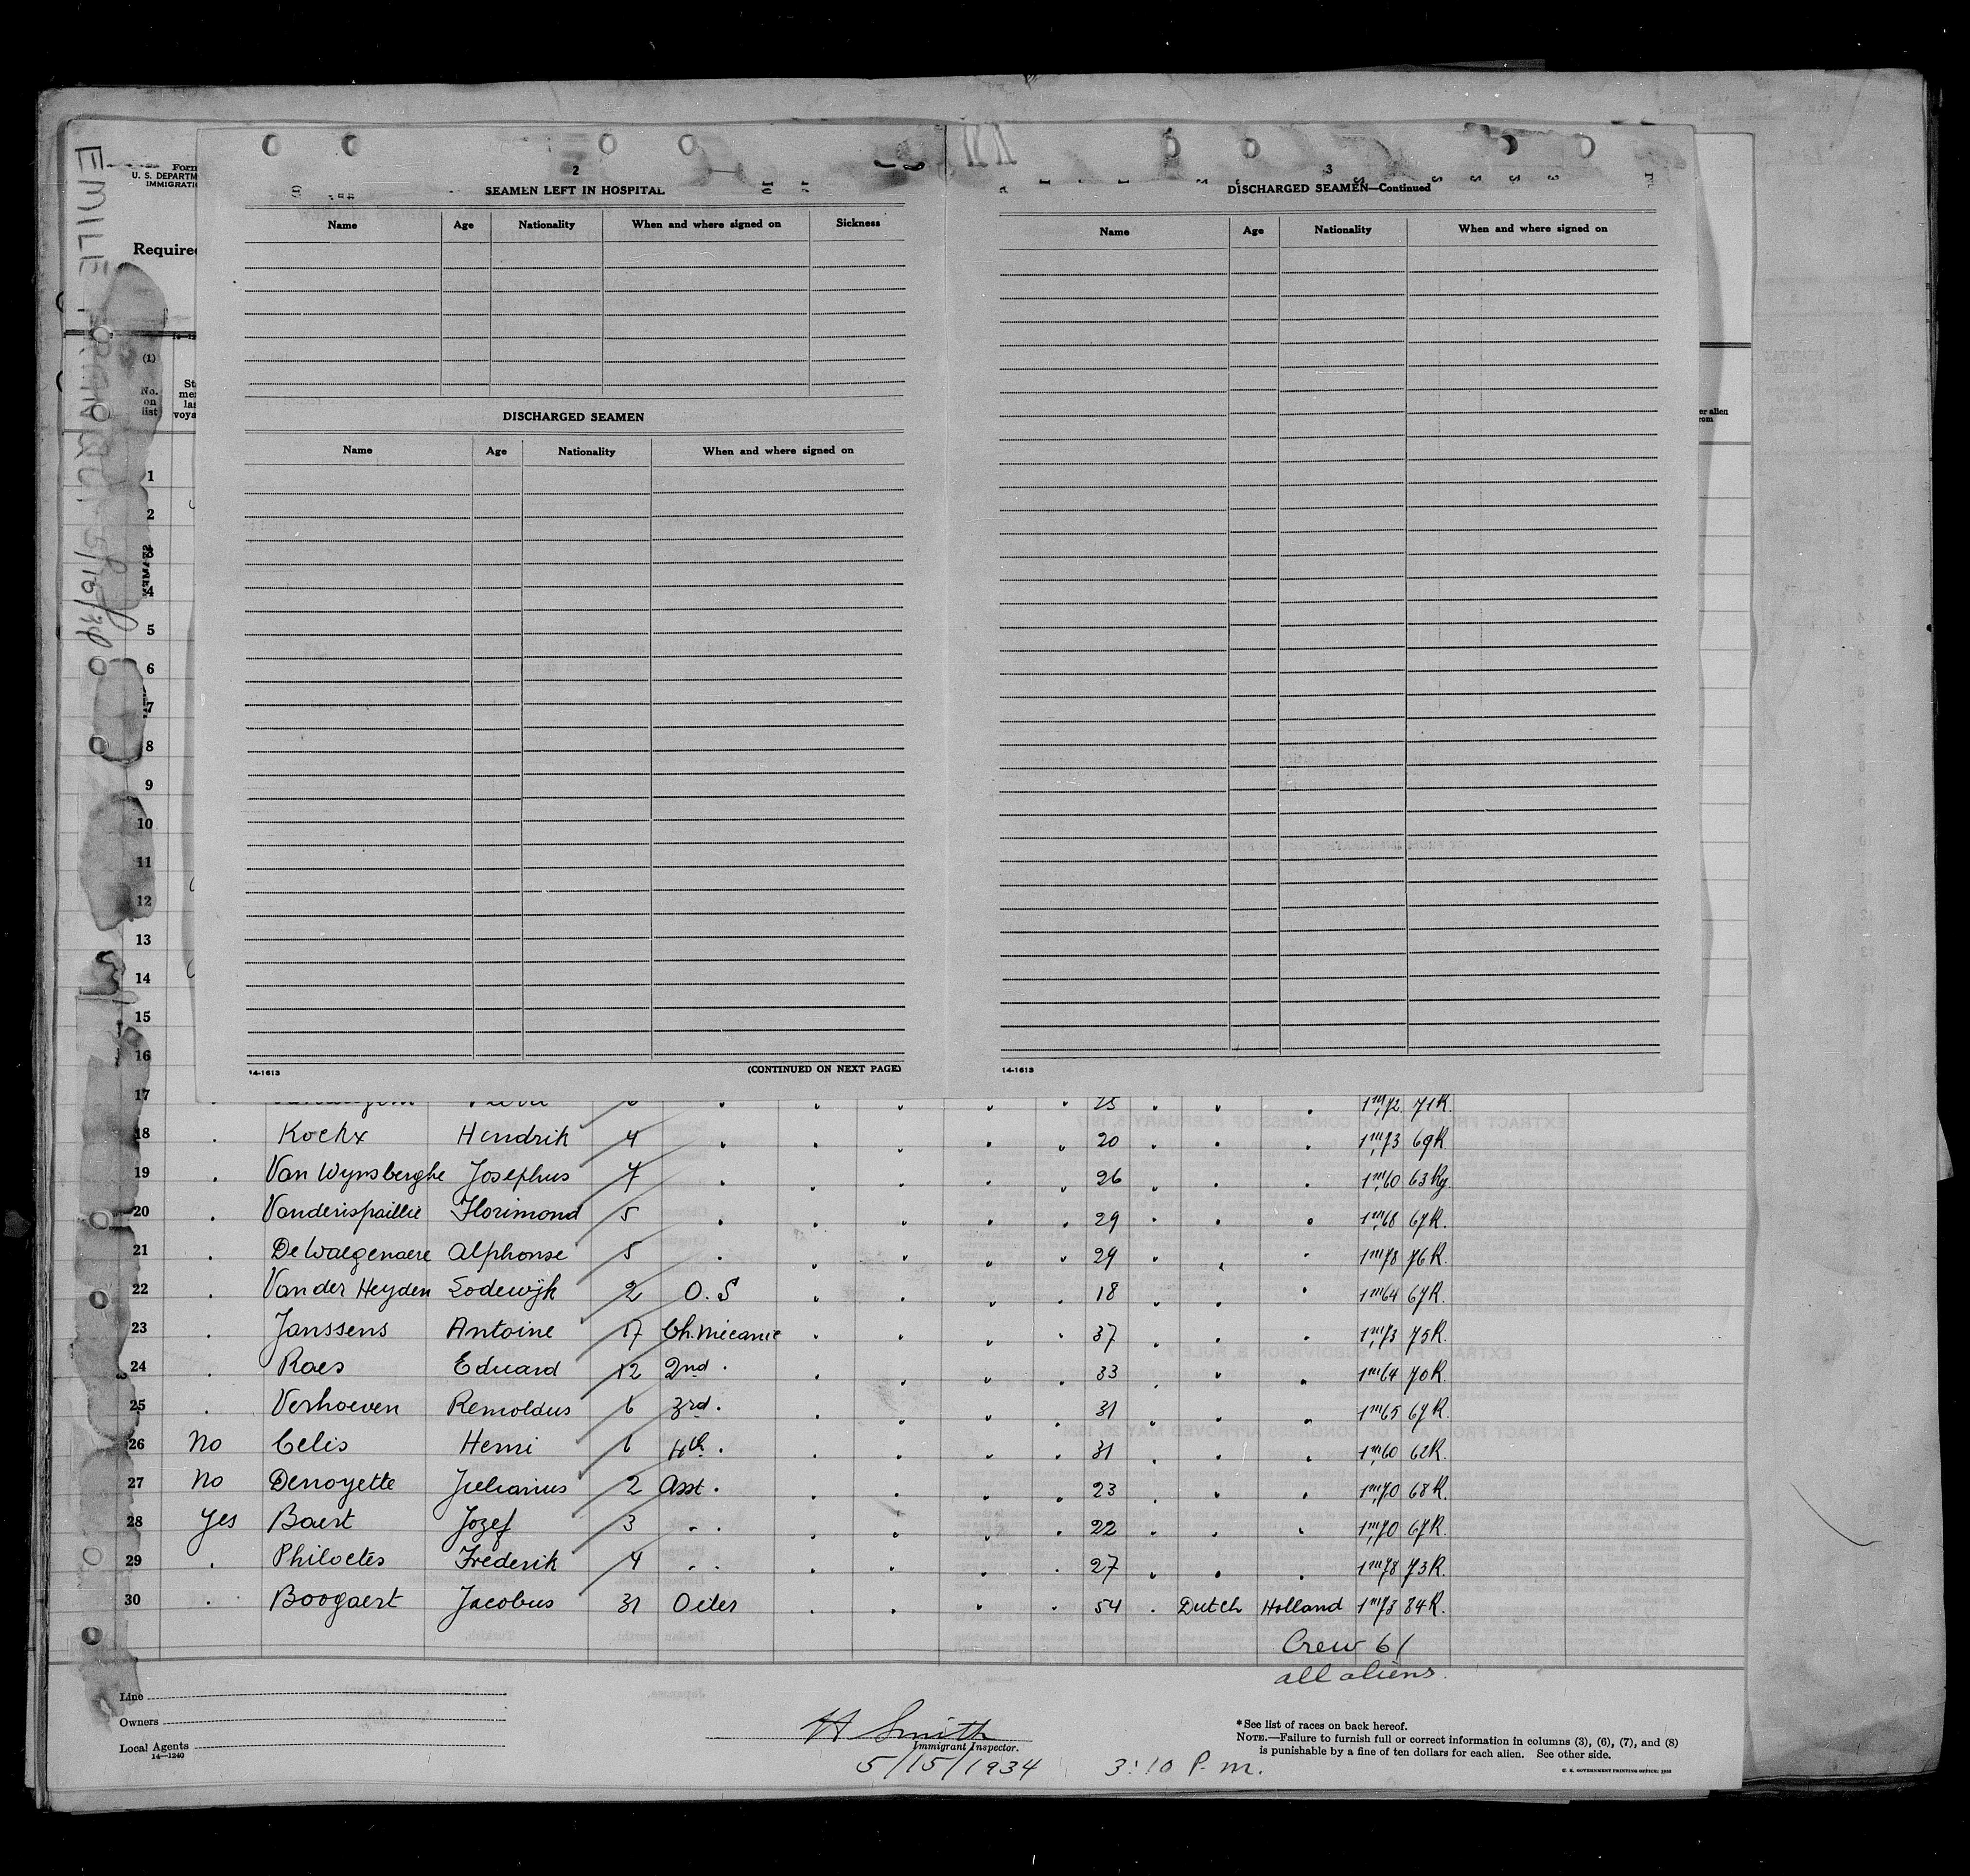 EMILE FRANCQUI 5/16/34
Form
U. S. DEPARTM
IMMIGRATIO
Require
(1)
No. on list
St
me
la
voya
2
SEAMEN LEFT IN HOSPITAL
Name Age Nationality When and where signed on Sickness
DISCHARGED SEAMEN
Name Age Nationality When and where signed on
14-1613 (CONTINUED ON NEXT PAGE)
3
DISCHARGED SEAMEN—Continued
Name Age Nationality When and where signed on
14-1613
er alien
rom
1
2
3
4
5
6
7
8
9
10
11
12
13
14
15
16
17 25 1m72 71K.
18 . Kockx Hendrik 4 20 1m73 69K
19 . Van Wynsberghe Josephus 7 26 1m60 63Kg.
20 . Vanderispaillie Florimond 5 29 1m68 67K.
21 . De Waegenaere Alphonse 5 29 1m78 76K.
22 . Van der Heyden Lodewijk 2 O.S 18 1m64 67K.
23 . Janssens Antoine 17 Ch.Mecanic 37 1m73 75K.
24 . Raes Eduard 12 2nd . 33 1m64 70K.
25 . Verhoeven Remoldus 6 3rd . 31 1m65 67K.
26 No Celis Henri 6 4th . 31 1m60 62K.
27 No Denoyette Julianus 2 Asst . 23 1m70 68K.
28 Yes Baert Jozef 3 . . 22 1m70 67K.
29 . Philoctès Frederik 4 . . 27 1m78 73K.
30 . Boogaert Jacobus 31 Oiler 54 . Dutch Holland 1m73 84K.
Crew 61
all aliens.
Line
Owners
Local Agents
14—1240
H Smith
Immigrant Inspector.
5/15/1934 3:10 P.m.
*See list of races on back hereof.
NOTE.—Failure to furnish full or correct information in columns (3), (6), (7), and (8)
is punishable by a fine of ten dollars for each alien. See other side.
U. S. GOVERNMENT PRINTING OFFICE: 1933